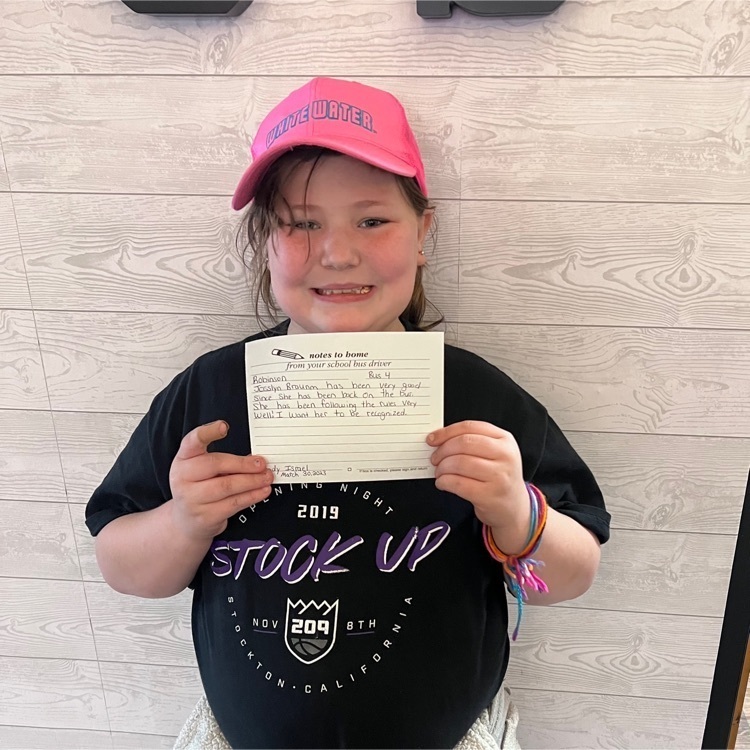 WHITE WATER
notes to home
from your school bus driver
Robinson Bus 4
Jocslyn has been very good
since she has been back on the bus.
She has been following the rules very
well! I want her to be recognized.
Ismel
March 30, 2023
OPENING NIGHT
2019
STOCK UP
NOV 209 8TH
STOCKTON · CALIFORNIA